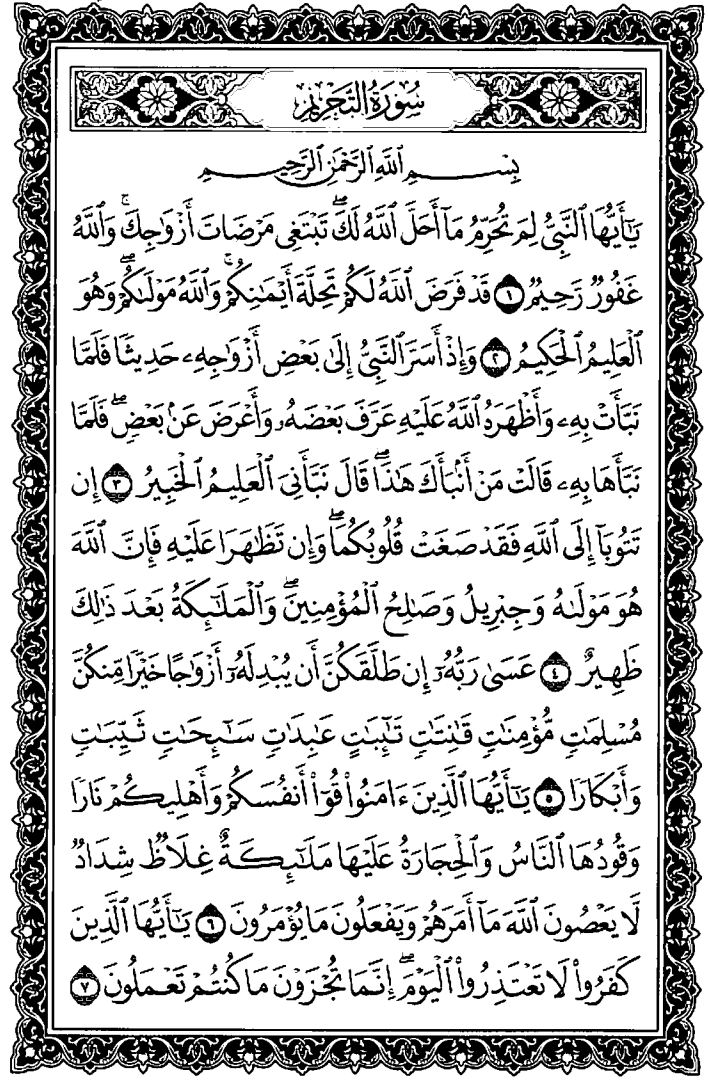 سُورَةُ التَّحْرِيمِ
بِسْمِ ٱللَّهِ ٱلرَّحْمَٰنِ ٱلرَّحِيمِ
يَٰٓأَيُّهَا ٱلنَّبِىُّ لِمَ تُحَرِّمُ مَآ أَحَلَّ ٱللَّهُ لَكَ ۖ تَبْتَغِى مَرْضَاتَ أَزْوَٰجِكَ ۚ وَٱللَّهُ
غَفُورٌ رَّحِيمٌ ١ قَدْ فَرَضَ ٱللَّهُ لَكُمْ تَحِلَّةَ أَيْمَٰنِكُمْ ۚ وَٱللَّهُ مَوْلَىٰكُمْ ۖ وَهُوَ
ٱلْعَلِيمُ ٱلْحَكِيمُ ٢ وَإِذْ أَسَرَّ ٱلنَّبِىُّ إِلَىٰ بَعْضِ أَزْوَٰجِهِۦ حَدِيثًا فَلَمَّا
نَبَّأَتْ بِهِۦ وَأَظْهَرَهُ ٱللَّهُ عَلَيْهِ عَرَّفَ بَعْضَهُۥ وَأَعْرَضَ عَنۢ بَعْضٍ ۖ فَلَمَّا
نَبَّأَهَا بِهِۦ قَالَتْ مَنْ أَنۢبَأَكَ هَٰذَا ۖ قَالَ نَبَّأَنِىَ ٱلْعَلِيمُ ٱلْخَبِيرُ ٣ إِن
تَتُوبَآ إِلَى ٱللَّهِ فَقَدْ صَغَتْ قُلُوبُكُمَا ۖ وَإِن تَظَٰهَرَا عَلَيْهِ فَإِنَّ ٱللَّهَ
هُوَ مَوْلَىٰهُ وَجِبْرِيلُ وَصَٰلِحُ ٱلْمُؤْمِنِينَ ۖ وَٱلْمَلَٰٓئِكَةُ بَعْدَ ذَٰلِكَ
ظَهِيرٌ ٤ عَسَىٰ رَبُّهُۥٓ إِن طَلَّقَكُنَّ أَن يُبْدِلَهُۥٓ أَزْوَٰجًا خَيْرًا مِّنكُنَّ
مُسْلِمَٰتٍ مُّؤْمِنَٰتٍ قَٰنِتَٰتٍ تَٰٓئِبَٰتٍ عَٰبِدَٰتٍ سَٰٓئِحَٰتٍ ثَيِّبَٰتٍ
وَأَبْكَارًا ٥ يَٰٓأَيُّهَا ٱلَّذِينَ ءَامَنُوا۟ قُوٓا۟ أَنفُسَكُمْ وَأَهْلِيكُمْ نَارًا
وَقُودُهَا ٱلنَّاسُ وَٱلْحِجَارَةُ عَلَيْهَا مَلَٰٓئِكَةٌ غِلَاظٌ شِدَادٌ
لَّا يَعْصُونَ ٱللَّهَ مَآ أَمَرَهُمْ وَيَفْعَلُونَ مَا يُؤْمَرُونَ ٦ يَٰٓأَيُّهَا ٱلَّذِينَ
كَفَرُوا۟ لَا تَعْتَذِرُوا۟ ٱلْيَوْمَ ۖ إِنَّمَا تُجْزَوْنَ مَا كُنتُمْ تَعْمَلُونَ ٧